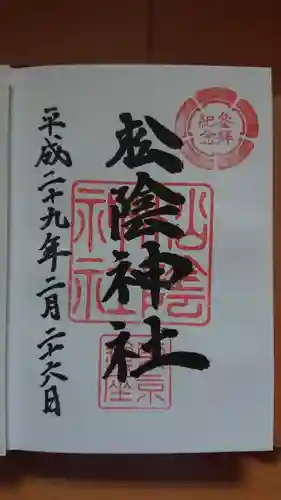 参拝
記念
松陰神社
松陰
神社
東京
鎮座
平成二十九年二月二十六日